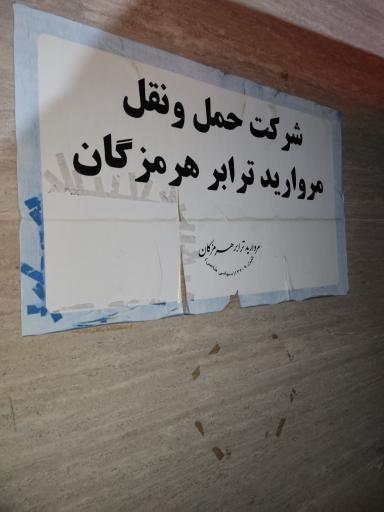 شرکت حمل ونقل
مروارید ترابر هرمزگان
مروارید ترابر هرمزگان